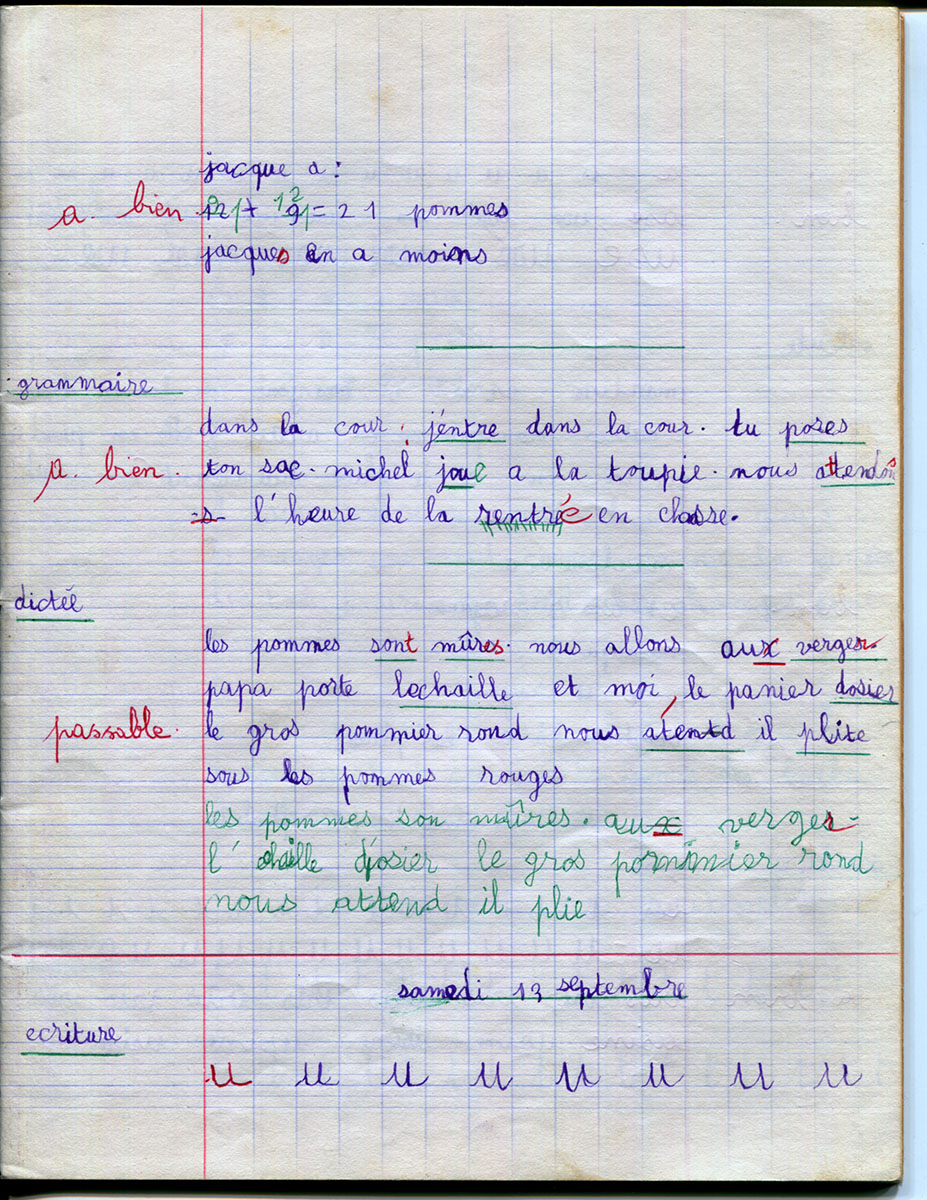 jacque a :
a. bien 12 + 9 = 21 pommes
jacques en a moins
grammaire
dans la cour. j'entre dans la cour. tu poses
a. bien. ton sac. michel joue a la toupie. nous attendon
-s- l'heure de la rentrée en classe.
dictée
les pommes sont mûres. nous allons aux verger
papa porte lechaille et moi, le panier dosier
passable. le gros pommier rond nous aténtd il plite
sous les pommes rouges
les pommes son mûres. aux verger
l'chaille d'osier le gros pommier rond
nous attend il plie
samedi 13 septembre
ecriture
u u u u u u u u